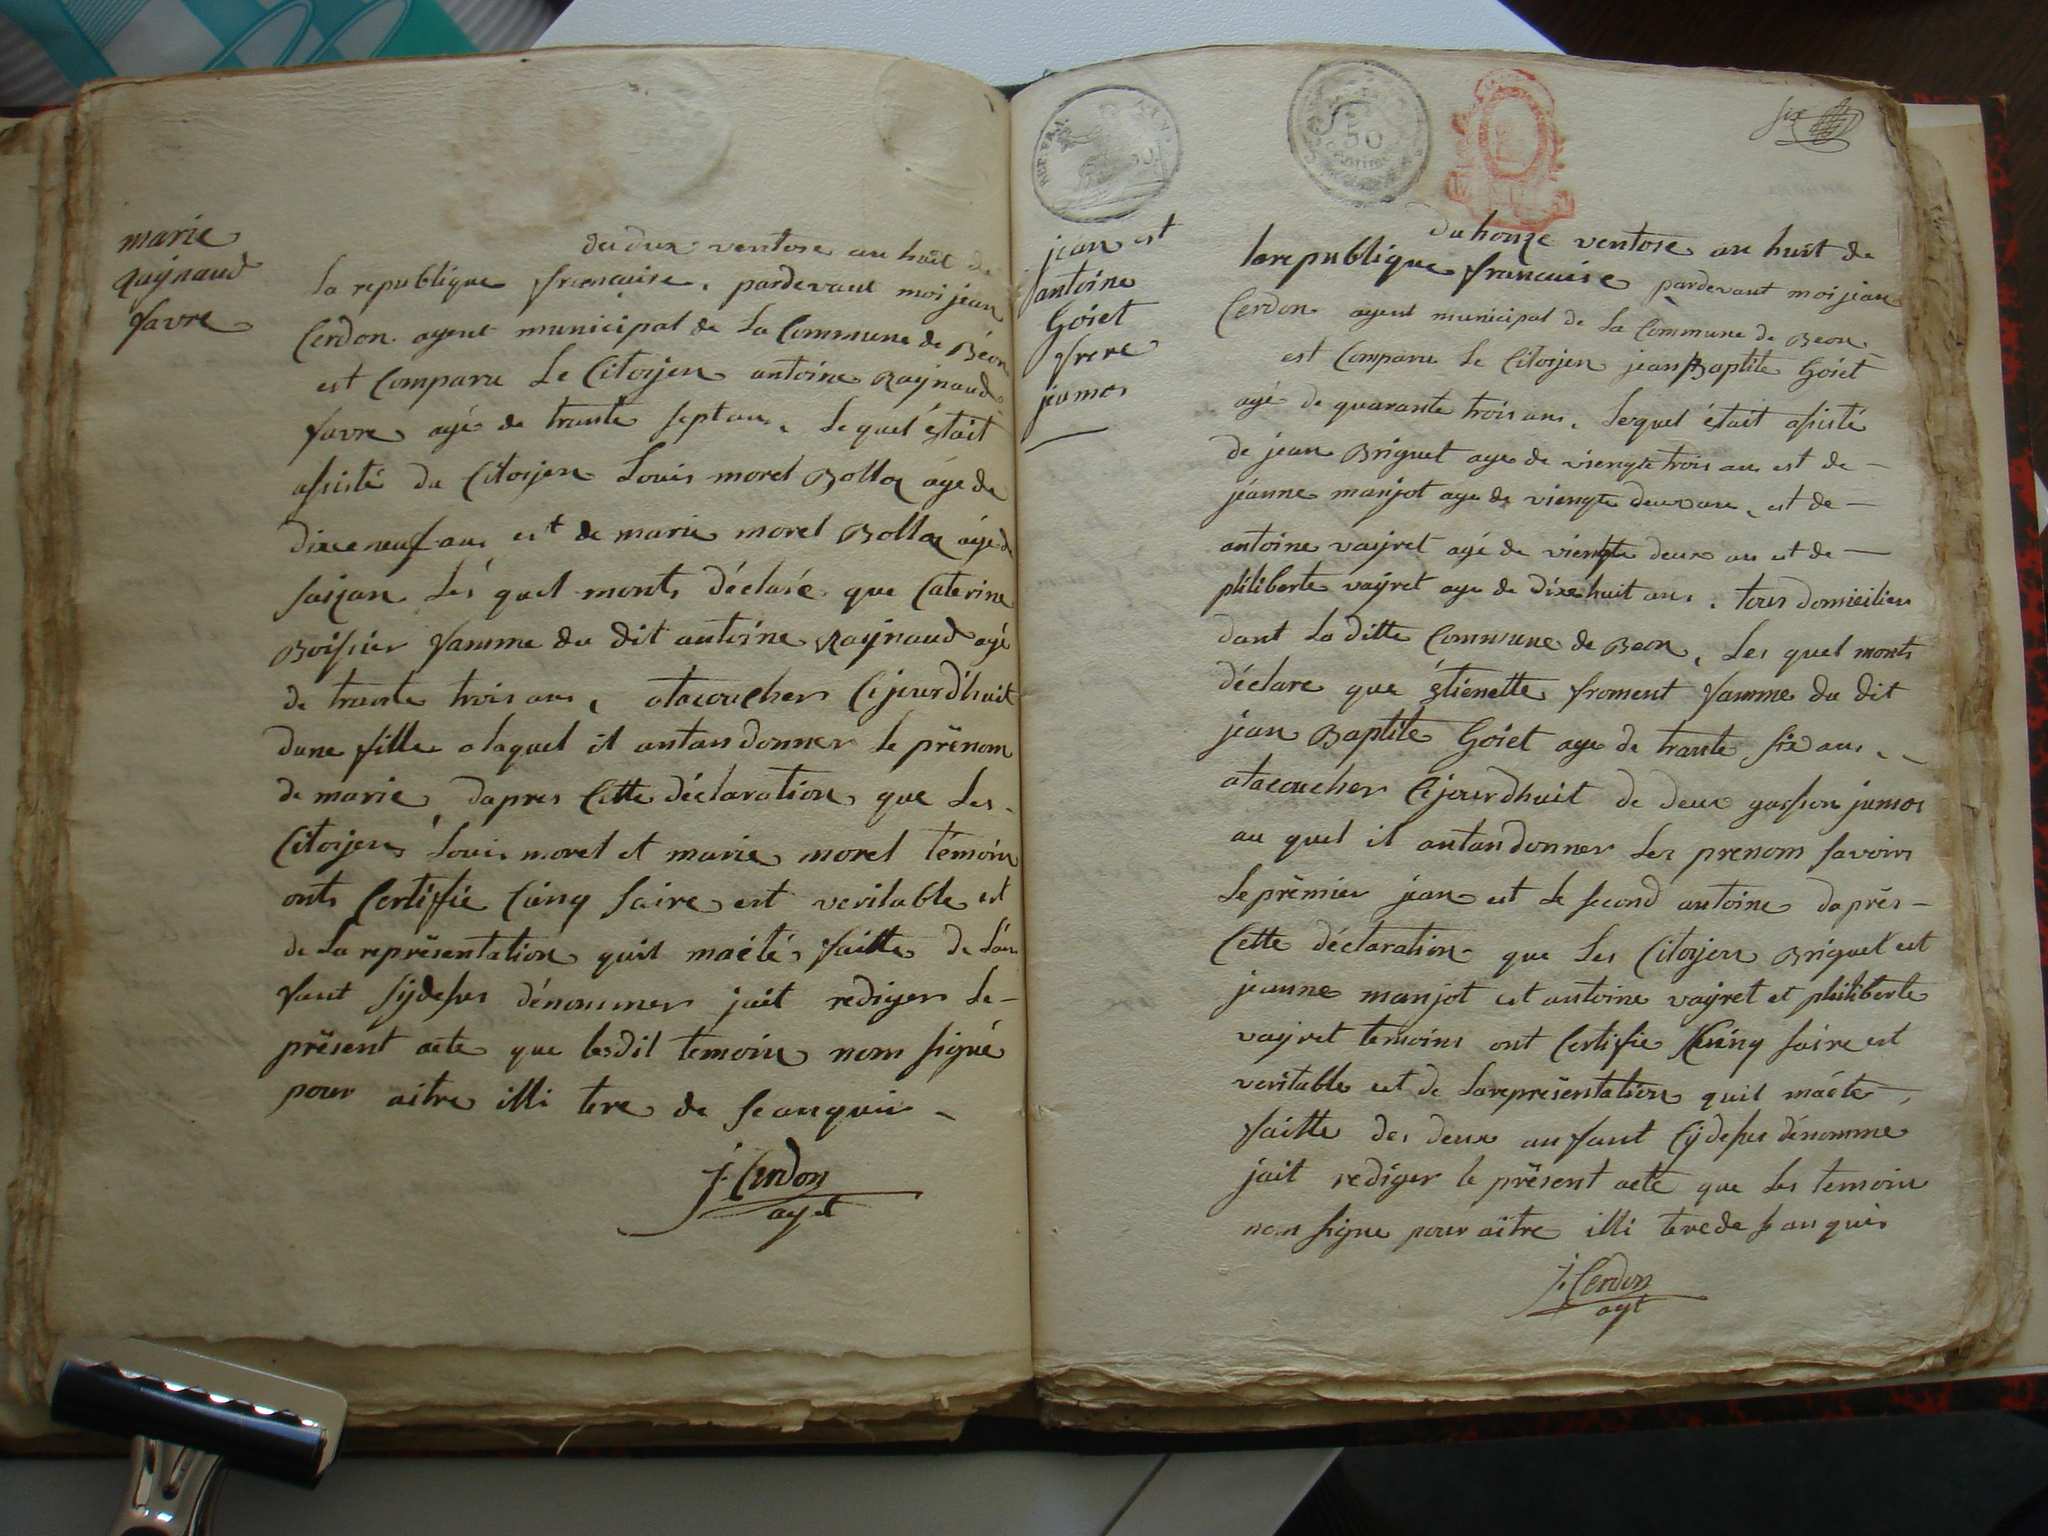 marie
Raynaud
favre
du dix ventose an huit de
la republique francaise, pardevant moi jean
Cerdon agent municipal de la Commune de Béon
est Comparu Le Citoÿen antoine Raÿnaud
favre agé de trante sept ans, Lequel était
asisté du Citoÿen Louis morel Bollaz agé de
dixeneuf ans est de marie morel Bollaz agé de
saizan Lés quel monts déclaré que Caterine
Boissier famme du dit antoine Raÿnaud agé
de trante trois ans, atacoucher Cejourd'huit
dune fille alaquel il antandonner Le prénom
de marie, dapres Cette déclaration que Les
Citoÿens Louis morel et marie morel témoin
onts Certifie Cinq saire est veritable est
de La représentation quil maété faitte de L'an
fant sÿdesus dénommer jait rediger Le
présent acte que lesdit temoin nom signé
pour aitre illi tere de se anquis
j. Cerdon
agt
six
REP. FRA.
50
centimes
jean est
antoine
Goiet
frere
jumos
du honze ventose an huit de
larepublique francaise pardevant moi jean
Cerdon agent municipal de La Commune de Béon
est Comparu Le Citoÿen jean Baptite Goiet
agé de quarante trois ans, Lequel était asisté
de jean Briguet age de viengte trois an est de
jeanne manjot age de viengte deux an, est de
antoine vaÿret agé de viengte deux an et de
philiberte vaÿret age de dixehuit ans, tous domicilier
dant La ditte Commune de Beon, Les quel monts
déclare que étienette froment famme du dit
jean Baptite Goiet age de trante six ans,
atacoucher Cejourdhuit de deux gasson jumos
au quel il antandonner Les prenom savoirs
Le prémier jean est Le second antoine daprés
Cette déclaration que Les Citoÿen Briguet est
jeanne manjot est antoine vaÿret et philiberte
vaÿret temoins ont Certifie Cinq saire est
veritable est de Lareprésentation quil maéte
faitte des deux anfant Cÿdesus dénommé
jait rediger le présent acte que Les temoin
nom signe pour aitre illi terede se anquis
j. Cerdon
agt